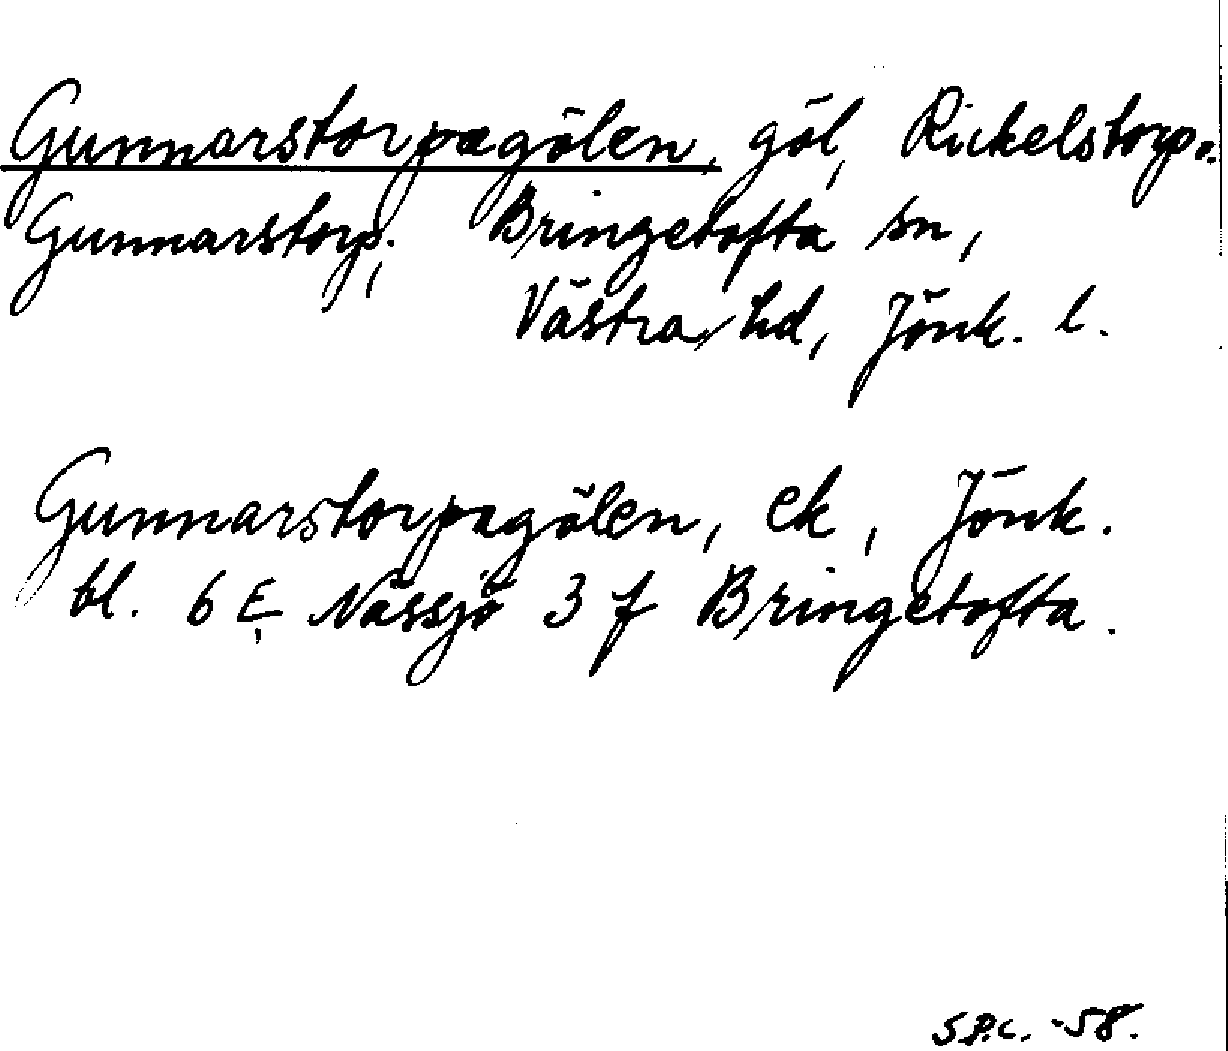 Gunnarstorpagölen, göl, Rickelstorp o.
Gunnarstorp, Bringetofta sn,
Västra hd, Jönk. l.
Gunnarstorpagölen, ek, Jönk.
bl. 6 E Nässjö 3 f Bringetofta.
S.P.C. -58.